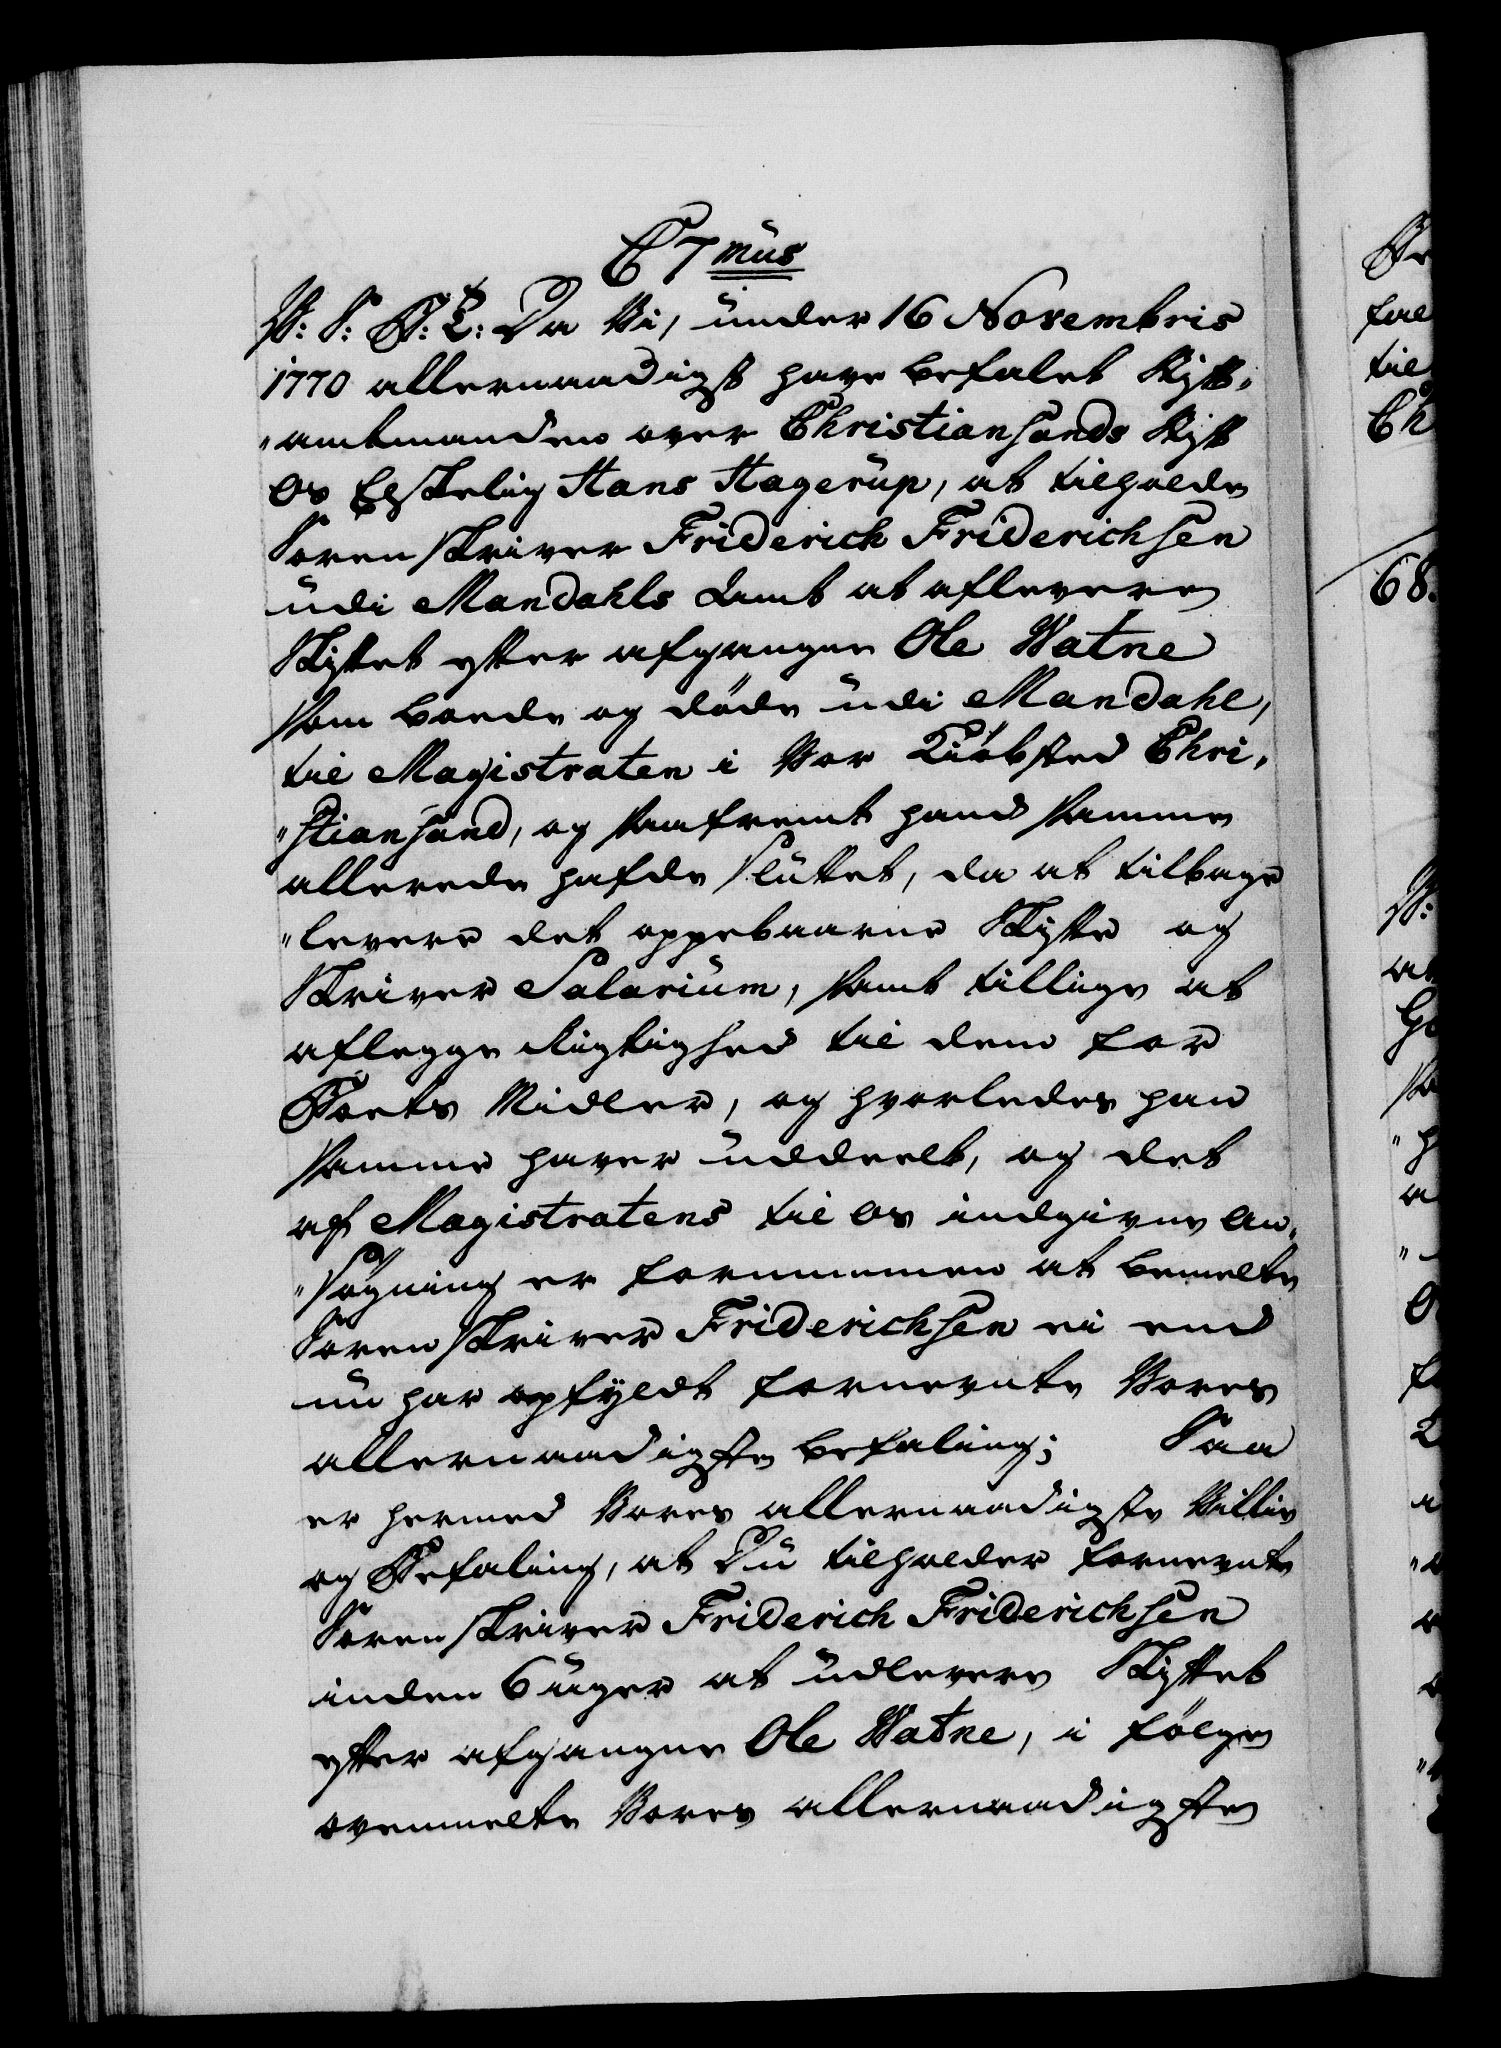 C 7mus
W: S: G: T: Da Vi, under 16 Novembris
1770 allernaadigst have befalet Stift-
"amtmanden over Christiansands Stift
Os Elskelig Hans Hagerup, at tilholde
Sorenskriver Friderich Friderichsen
udi Mandahls Amt at aflevere
Skiftet efter afgangne Ole Watne
som boede og døde udi Mandahl,
til Magistraten i Vor Kiøbsted Chri-
"stiansand, og saafremt hand samme
allerede hafde sluttet, da at tilbage
"levere det oppebaarne Skifte og
Skriver Salarium, samt tillige at
aflegge Rigtighed til dem for
Boets Midler, og hvorledes han
samme haver uddeelt, og det
af Magistratens til os indgivne An-
"søgning er fornummen at bemelte
Sorenskriver Friderichsen ei end
nu har opfyldt fornevnte Vores
allernaadigste befaling; Saa
er hermed Vores allernaadigste Villie
og Befaling, at Du tilholder fornevnte
Sorenskriver Friderich Friderichsen
inden 6 uger at udlevere Skiftet
efter afgangne Ole Watne, i følge
ovenmelte Vores allernaadigste